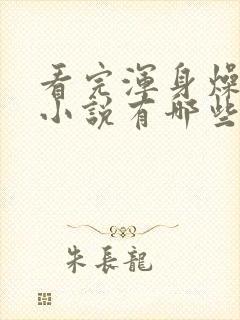 看完渾身燥
小說有哪些
朱長龍